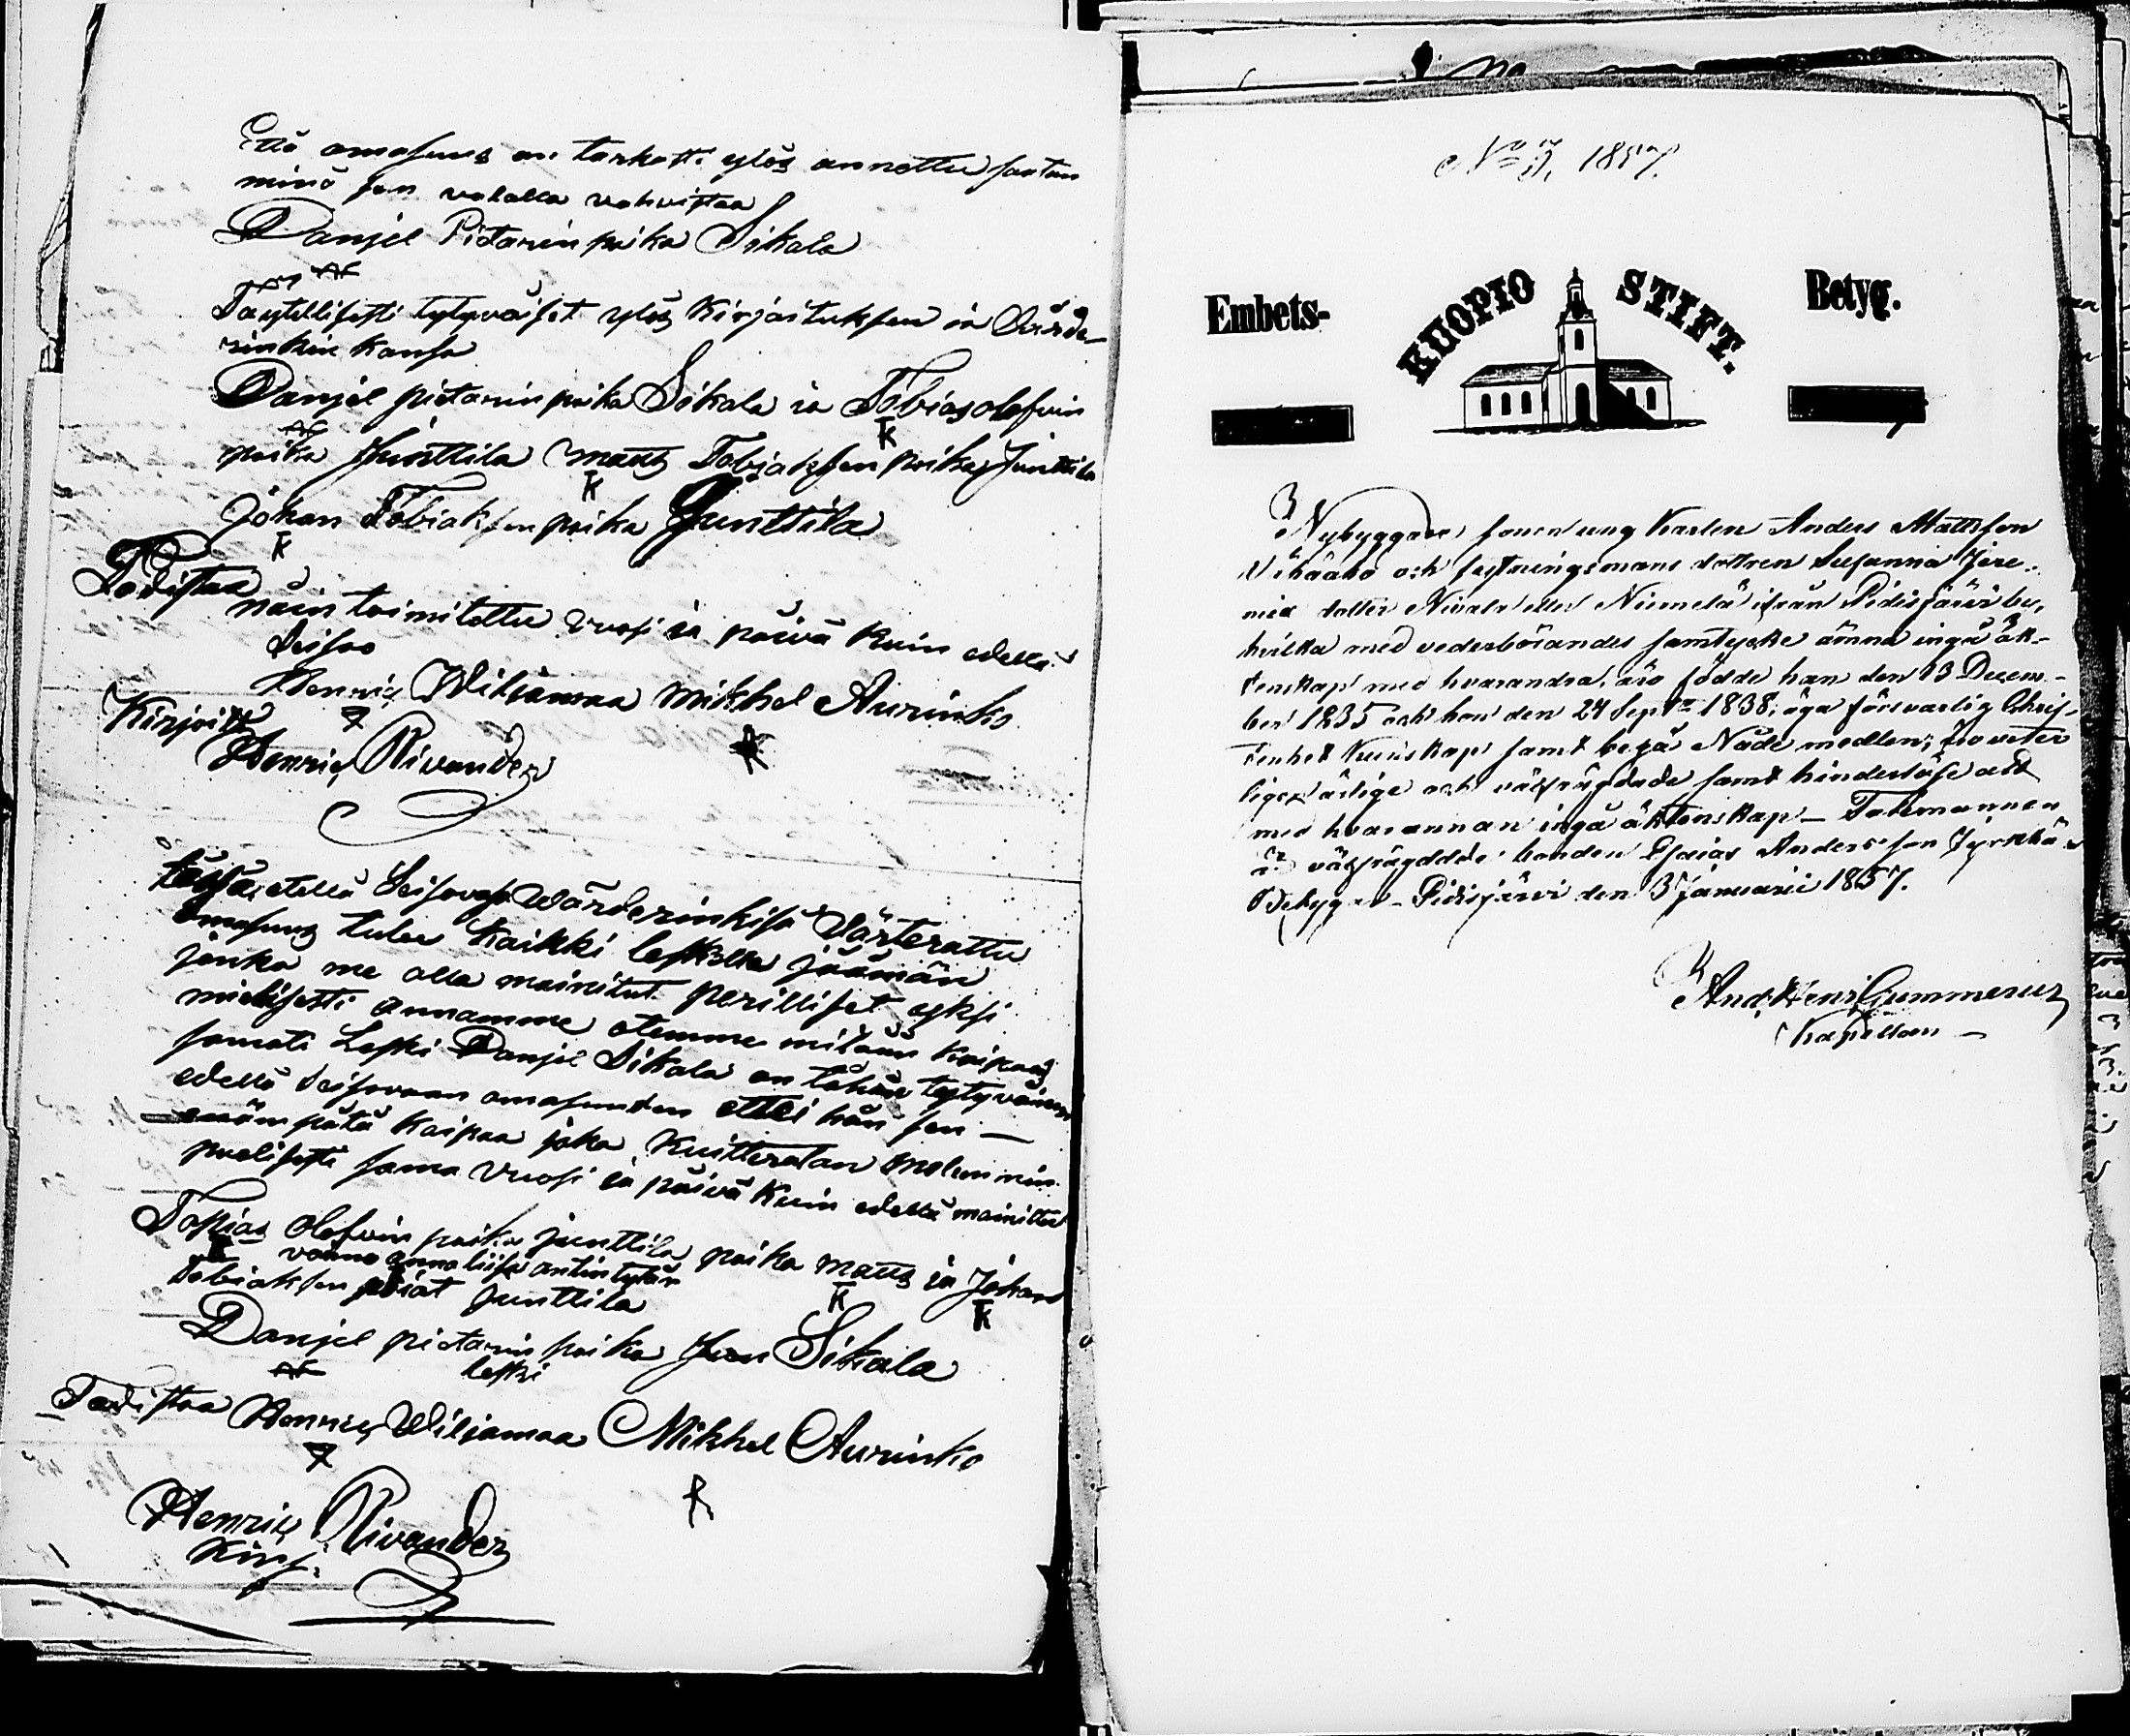 Että omasuus on tarkasti ylös annettu saatan
minä sen valalla vahvistaa
Danjel Pietarin poika Sikala
Täytellisesti tytyväiset ylös Kirjoituksen ja Värde-
rinkin kansa
Danjel pietarin poika Sikala ja Tobias olefvin
poika Junttila matts Tobiaksen poika Junttila
Johan Tobiaksen poika Junttila
Todistaa
näin toimitettu vuosi ja päivä kuin edellä
Seisoo
Henric Wiljamaa Mikkel Aurinko
Kirjoitti
Henric Nivander
tässä etellä Seisovasa Wärderinkisä Värterattu
omasuus tulee Kaikki leskelle jäämän
jonka me alla mainitut perilliset yksi
mielisesti annamme etemme mitään kaipaa
samate Leski Danjel Sikala on tähän tytyväinen
edellä seisovaan omasuuten ettei hän sen
enämpätä Kaipaa joka Kuitteratan molemmin
puolisesti sama vuosi ja päivä Kuin edellä mainittu
Topias olefvin poika junttila poika matts ja Johan
vaimo anna liisa antin tytär
Tobiaksen pojat Junttila
Danjel pietarin poika Sikala
leski
Todistaa Henric Wiljamaa Mikkel Aurinko
Henric Nivander
Kirj.
No 3, 1857.
Embets- KUOPIO STIFT. Betyg.
Nybyggare sonen ung Karlen Anders Mattsson
Vihäaho och festningsmans dottren Susanna Jere-
mia dotter Nivala eller Niemelä ifrån Pidisjärvi by,
hvilka med vederbörandes samtycke ämna ingå äk-
tenskap med hvarandra, äro födde han den 13 Decem-
ber 1835 och hon den 24 Septr 1838; äga försvarlig Chris-
tenhets Kunskap samt begå Nåde medlen; äro veter-
ligen ärlige och välfrägdade samt hinderlöse att
med hvarannan ingå äktenskap – Talemannen
är välfrägdade bonden Esaias Andersson Jyrkkä
Betygar Pidisjärvi den 3 Januarii 1857.
And. Henr. Gummerus
Kapellan